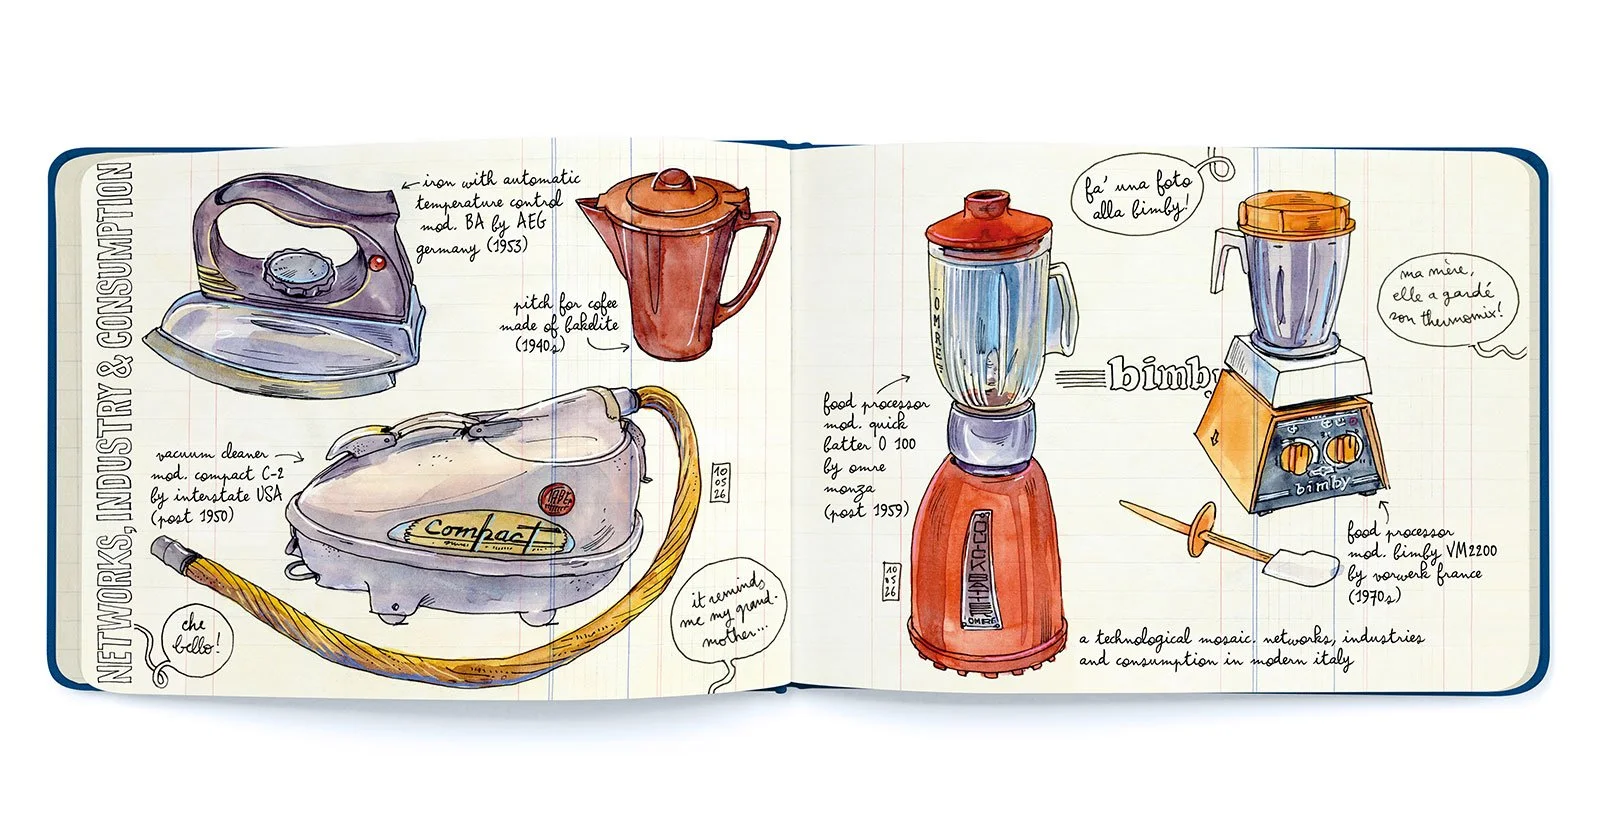 NETWORKS, INDUSTRY & CONSUMPTION
iron with automatic
temperature control
mod. BA by AEG
germany (1953)
pitch for cofee
made of bakelite
(1940s)
vacuum cleaner
mod. compact C-2
by interstate USA
(post 1950)
compact
10
05
26
che
bello!
it reminds
me my grand-
mother...
fa' una foto
alla bimby!
OMRE
food processor
mod. quick
batter O 100
by omre
monza
(post 1959)
10
05
26
OMRE
bimby
ma mère,
elle a gardé
son thermomix!
bimby
food processor
mod. bimby VM2200
by vorwerk france
(1970s)
a technological mosaic. networks, industries
and consumption in modern italy